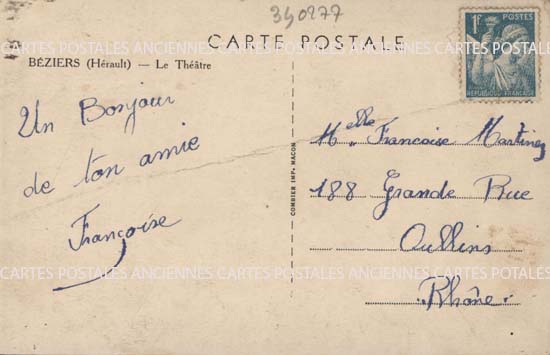 340277
CARTE POSTALE
1F POSTES
REPUBLIQUE FRANÇAISE
BÉZIERS (Hérault) — Le Théâtre
CARTES POSTALES ANCIENNES CARTES POSTALES ANCIENNES CARTES POTALES
Un Bonjour
de ton amie
Françoise
COMBIER IMP. MACON
Melle Francoise Martinez
188 Grande Rue
Oullins
Rhône.
CARTES POSTALES ANCIENNES CARTES POSTALES ANCIENNES CARTES POTALES